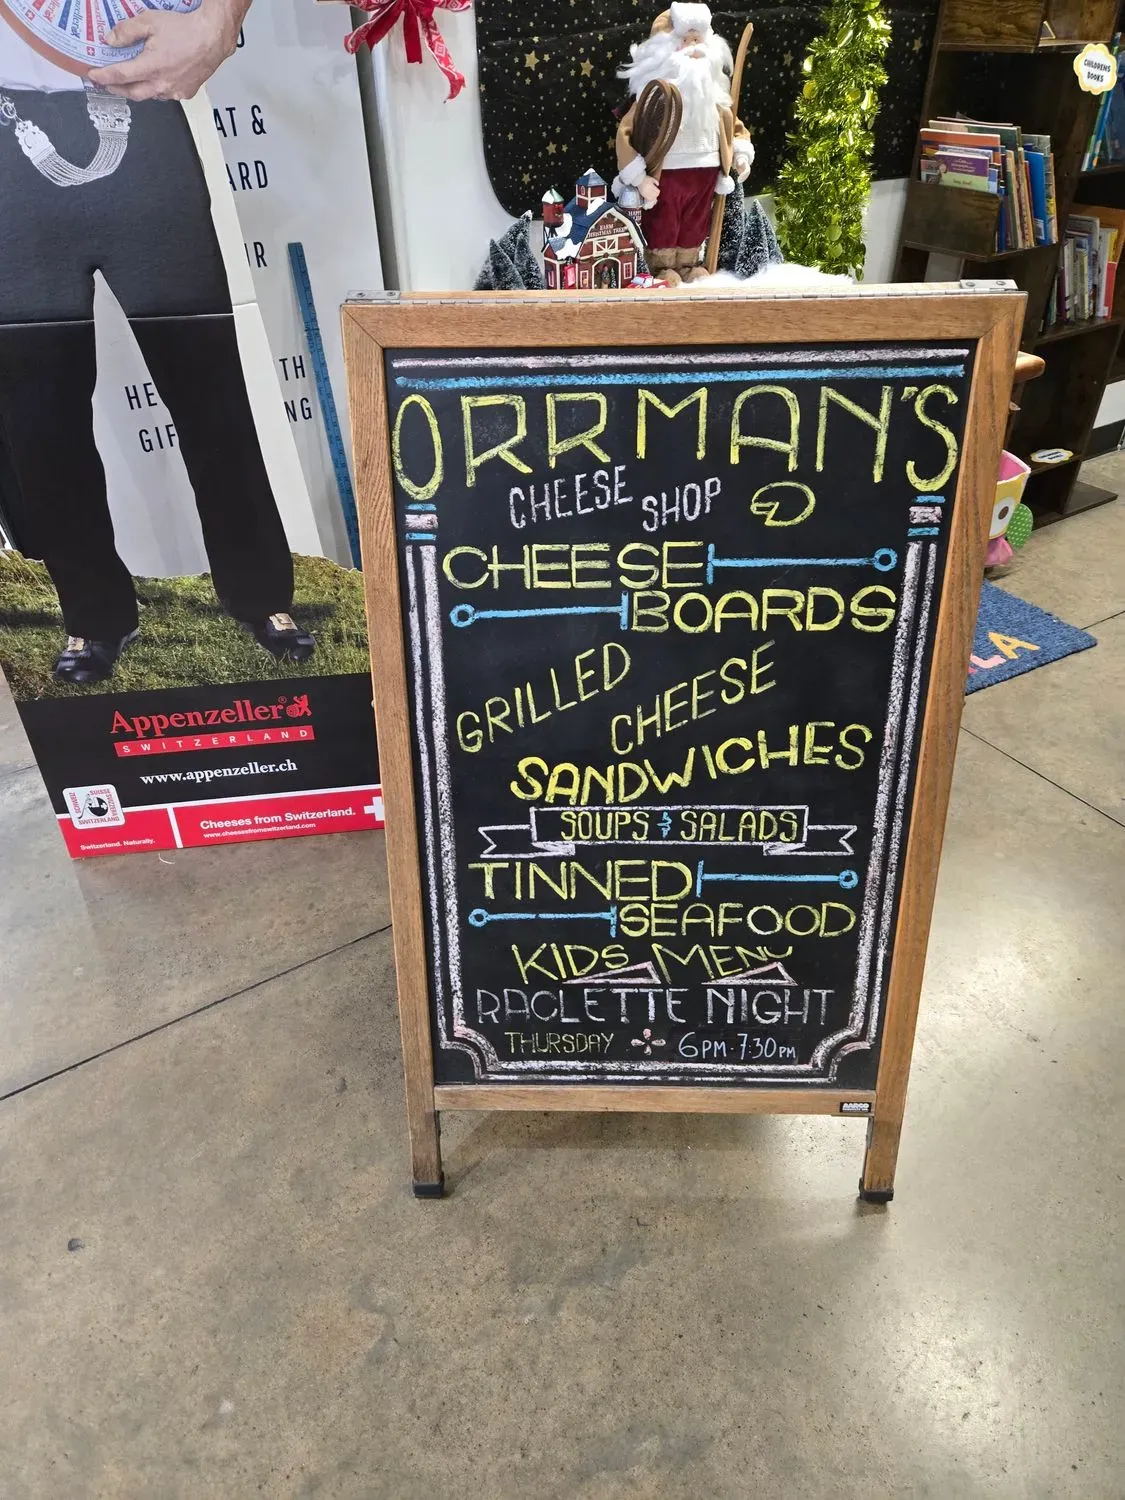 AT &
ARD
UR
TH
HE
NG
GIF
CHILDRENS
BOOKS
ORRMAN'S
CHEESE SHOP
CHEESE
BOARDS
GRILLED
CHEESE
SANDWICHES
SOUPS & SALADS
TINNED
SEAFOOD
KIDS MENU
RACLETTE NIGHT
THURSDAY 6PM-7:30PM
AARCO
Appenzeller®
SWITZERLAND
www.appenzeller.ch
SCHWEIZ
SUISSE
SVIZZERA
SWITZERLAND
Switzerland. Naturally.
Cheeses from Switzerland.
www.cheesesfromswitzerland.com
LA